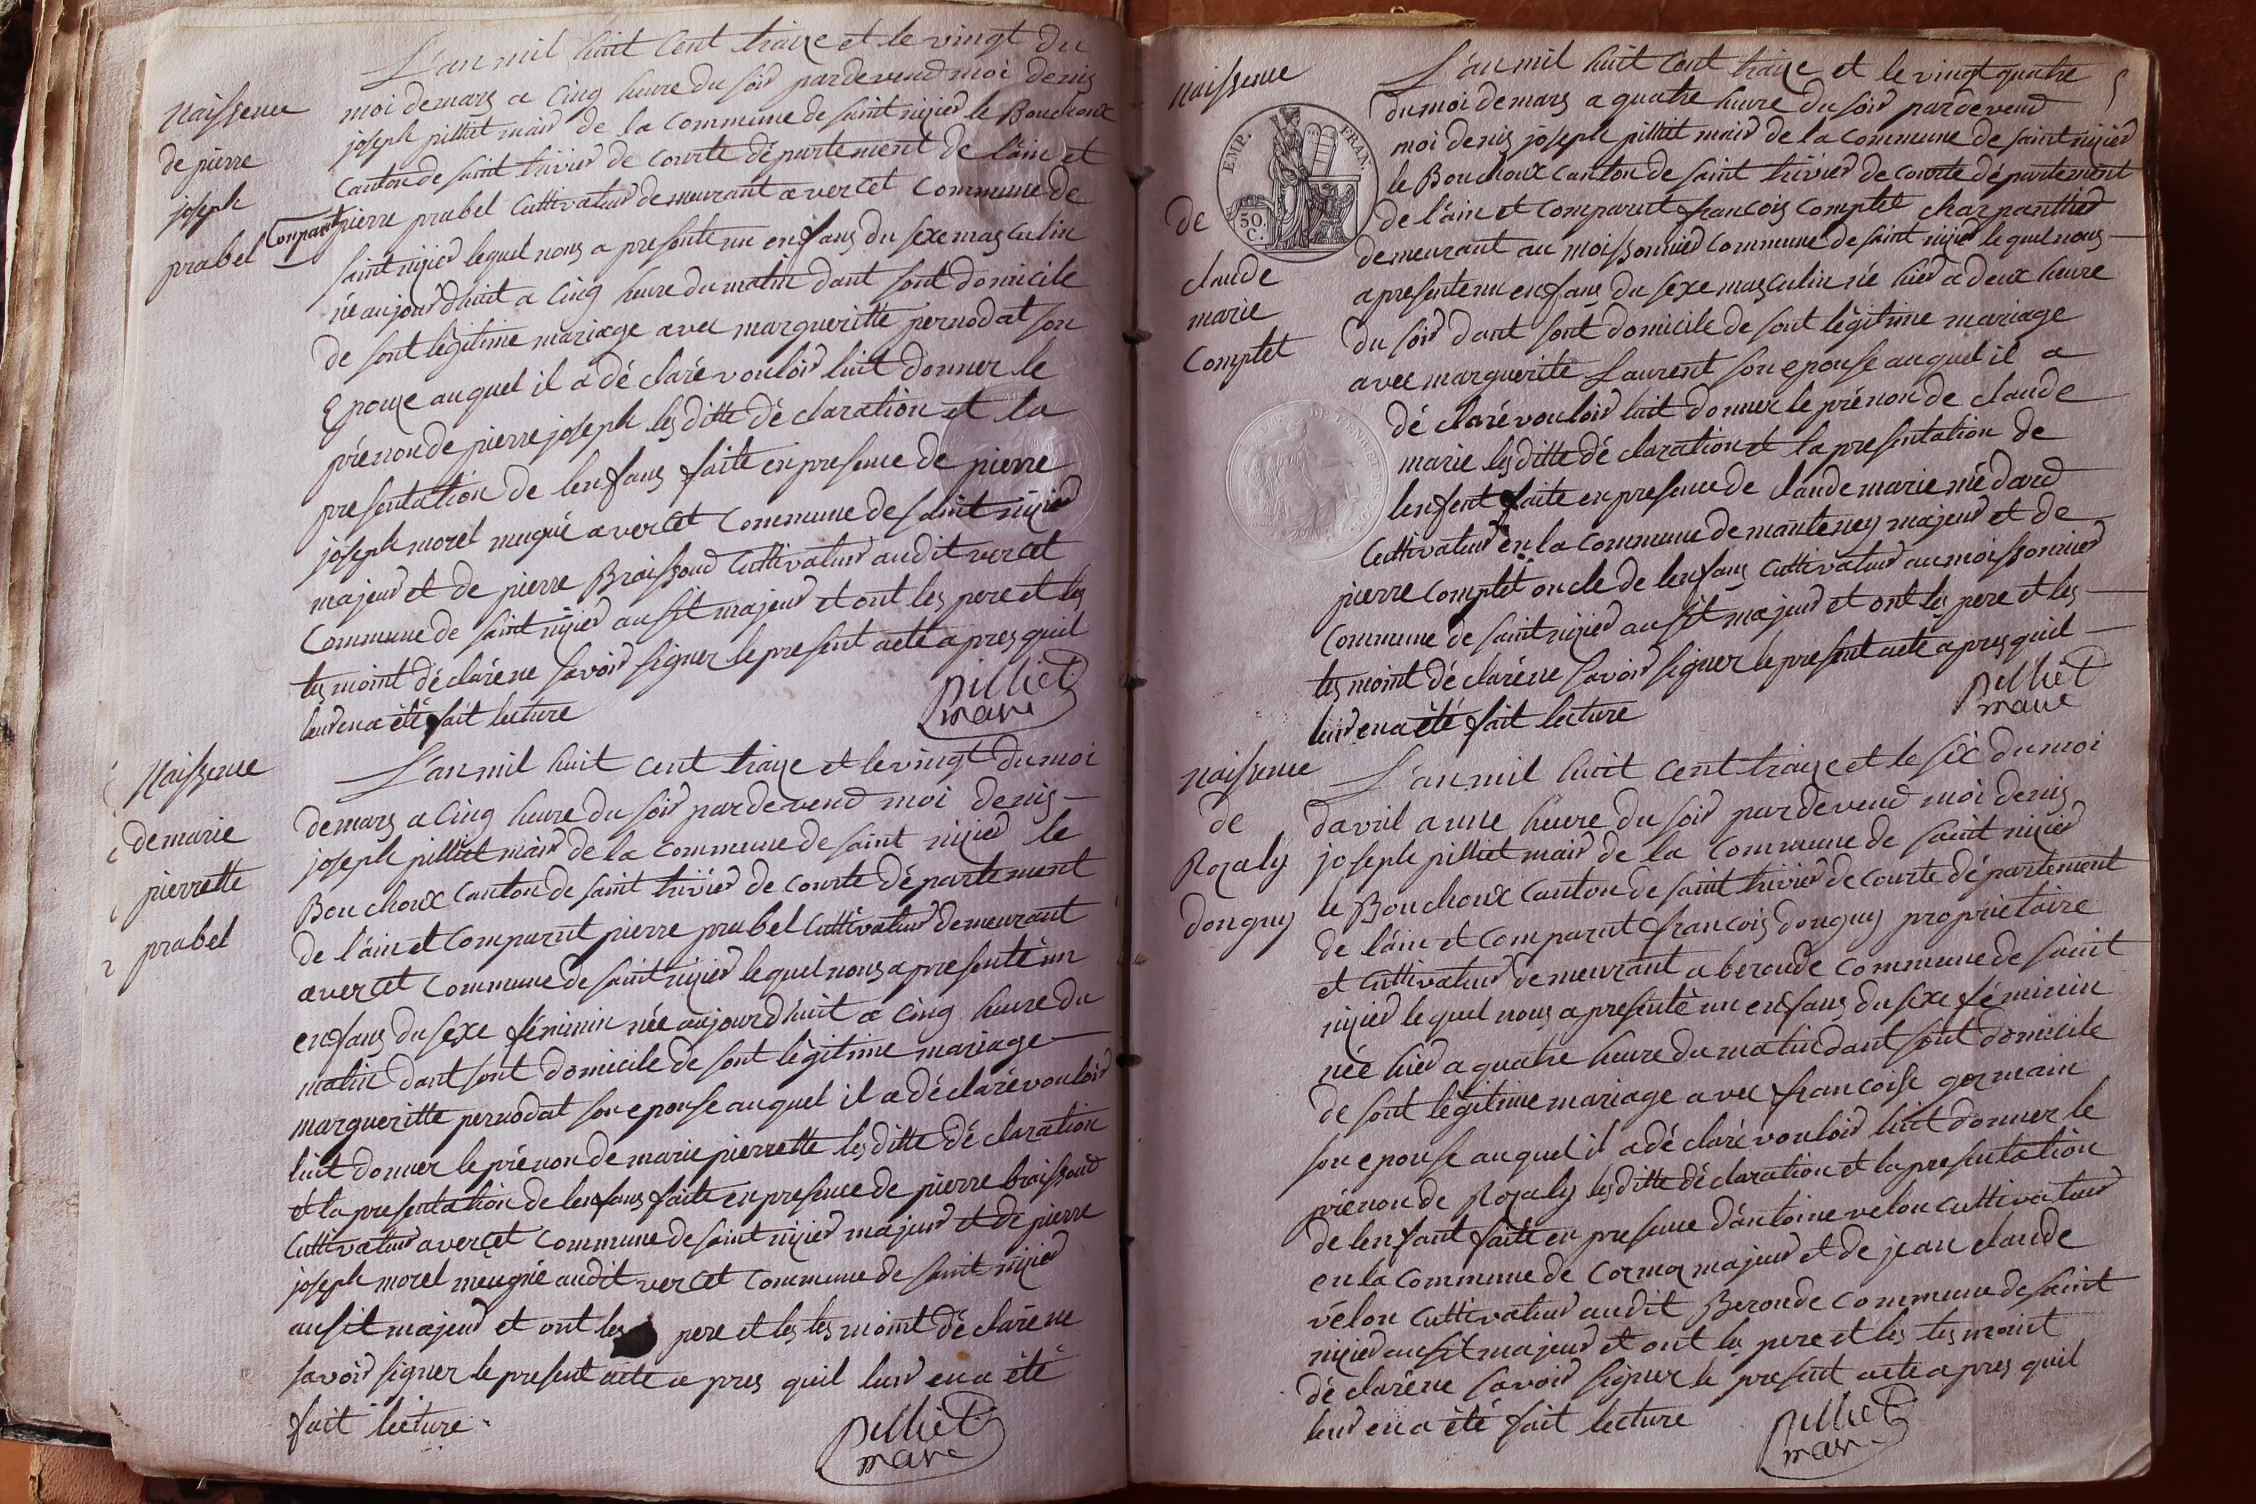 Naissence
de pierre
joseph
prabel
L'an mil huit cent traize et le vingt du
moi de mars a cinq heure du soir pardevend moi denis
joseph pilliet mair de la commune de saint nizier le Bouchoux
canton de saint trivier de courte département de l'ain et
Comparut pierre prabel cultivateur demeurant a vercet commune de
saint nizier lequel nous a presente un enfans du sexe masculin
né aujourdhuit a cinq heure du matin dant sont domicile
de sont légitime mariage avec margueritte pernodat son
Epouze auquel il a déclaré vouloir luit donner le
prénon de pierre joseph les ditte déclaration et la
presentation de lenfans faite en presence de pierre
joseph morel mugnié a vercet commune de saint nizier
majeur et de pierre Braissoud cultivateur audit vercet
commune de saint nizier ausit majeur et ont les pere et les
tesmoint déclaré ne savoir signer le present acte apres quil
leur en a été fait lecture
pilliet
mair
Naissence
de marie
pierrette
prabel
L'an mil huit cent traize et le vingt du moi
de mars a cinq heure du soir pardevend moi denis
joseph pilliet mair de la commune de saint nizier le
Bouchoux canton de saint trivier de courte département
de l'ain et comparut pierre prabel cultivateur demeurant
a vercet commune de saint nizier lequel nous a presenté un
enfans du sexe féminin née aujourdhuit a cinq heure du
matin dant sont domicile de sont légitime mariage
margueritte pernodat son epouse auquel il a déclaré vouloir
luit donner le prénon de marie pierrette les ditte déclaration
et la presentation de lenfans faite en presence de pierre braissoud
cultivateur a vercet commune de saint nizier majeur et de pierre
joseph morel meugnié audit vercet commune de saint nizier
ausit majeur et ont les pere et les tesmoint déclaré ne
savoir signer le present acte a pres quil leur en a été
fait lecture
pilliet
mair
5
naissence
de
claude
marie
complet
EMP. FRAN.
50 C.
L'an mil huit cent traize et le vingt quatre
du moi de mars a quatre heure du soir pardevend
moi denis joseph pilliet mair de la commune de saint nizier
le Bouchoux canton de saint trivier de courte département
de l'ain et comparut francois complet charpantier
demeurant au moissonnier commune de saint nizier lequel nous
a presente un enfans du sexe masculin né hier a deux heure
du soir dant sont domicile de sont légitime mariage
avec marguerite Laurent son epouse auquel il a
déclaré vouloir luit donner le prénon de claude
marie les ditte déclaration et la presentation de
lenfent faite en presence de claude marie médard
cultivateur en la commune de manteney majeur et de
pierre complet oncle de lenfans cultivateur au moissonnier
commune de saint nizier ausit majeur et ont les pere et les
tesmoint déclaré ne savoir signer le present acte apres quil
leur en a été fait lecture
pilliet
maire
naissence
de
Rozaly
donguy
L'an mil huit cent traize et le six du moi
davril a une heure du soir pardevend moi denis
joseph pilliet mair de la commune de saint nizier
le Bouchoux canton de saint trivier de courte département
de l'ain et comparut francois donguy proprietaire
et cultivateur demeurant a beronde commune de saint
nizier lequel nous a presenté un enfans du sexe féminin
née hier a quatre heure du matin dant sont domicile
de sont légitime mariage avec francoise germain
son epouse auquel il a déclaré vouloir luit donner le
prénon de Rozaly les ditte déclaration et la presentation
de lenfant faite en presence dantoine velon cultivateur
en la commune de cormoz majeur et de jean claude
vélon cultivateur audit Beronde commune de saint
nizier ausit majeur et ont les pere et les tesmoint
déclaré ne savoir signer le present acte apres quil
leur en a été fait lecture
pilliet
mair